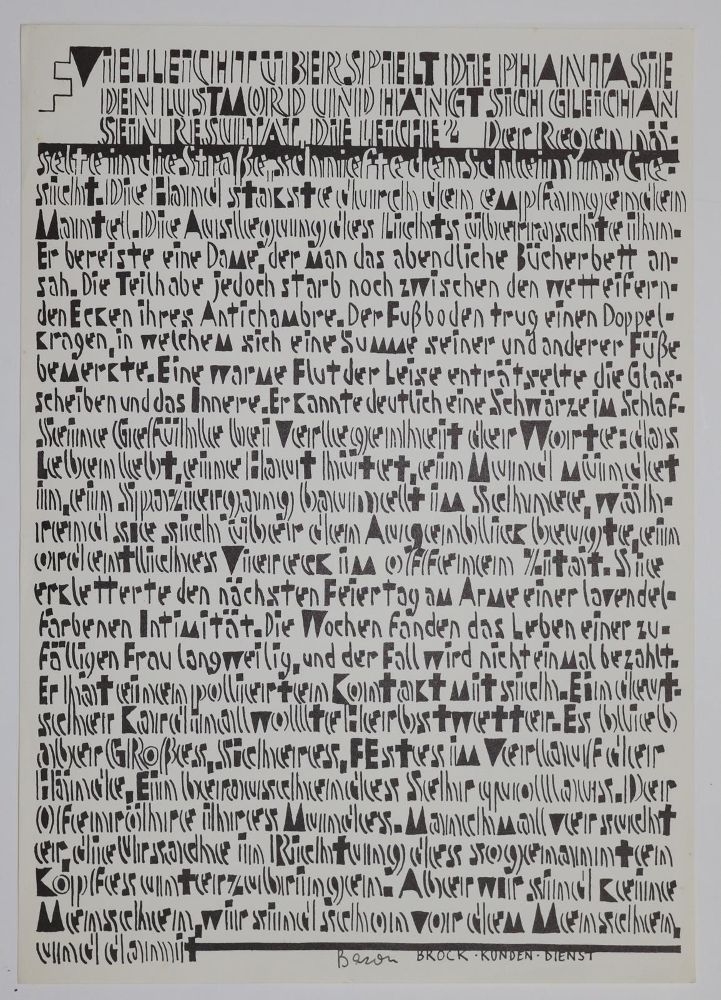 VIELLEICHT ÜBERSPIELT DIE PHANTASIE
DEN LUSTMORD UND HÄNGT SICH GLEICH AN
SEIN RESULTAT, DIE LEICHE? Der Regen nä-
selte in die Straße, schniefte den Schleim ins Ge-
sicht. Die Hand stakste durch den empfangenden
Mantel. Die Auslegung des Lichts überraschte ihn.
Er bereiste eine Dame, der man das abendliche Bücherbett an-
sah. Die Teilhabe jedoch starb noch zwischen den wetteifern-
den Ecken ihres Antichambre. Der Fußboden trug einen Doppel-
kragen, in welchem sich eine Summe seiner und anderer Füße
bemerkte. Eine warme Flut der Leise enträtselte die Glas-
scheiben und das Innere. Er kannte deutlich eine Schwärze im Schlaf.
Seine Gefühle bei Verlegenheit der Worte: das
Leben lebt, eine Haut hütet, ein Mund mündet
in, ein Spaziergang baumelt im Schnee, wäh-
rend sie sich über den Augenblick beugte, ein
ordentliches Viereck im offenen Zität. Sie
erkletterte den nächsten Feiertag am Arme einer lavendel-
farbenen Intimität. Die Wochen fanden das Leben einer zu-
fälligen Frau langweilig, und der Fall wird nicht einmal bezahlt.
Er hat einen polierten Kontakt mit sich. Ein deut-
scher Kardinal wollte Herbstwetter. Es blieb
aber GRoßes, Sicheres, FEstes im Verlauf der
Hände, Ein berauschendes Sehr quoll aus. Der
Ofenröhre ihres Mundes. Manchmal versucht
er, die Ursache in Richtung des sogenannten
Kopfes unterzubringen. Aber wir sind keine
Menschen, wir sind schon vor dem Menschen,
und damit
Bazon BROCK · KUNDEN · DIENST